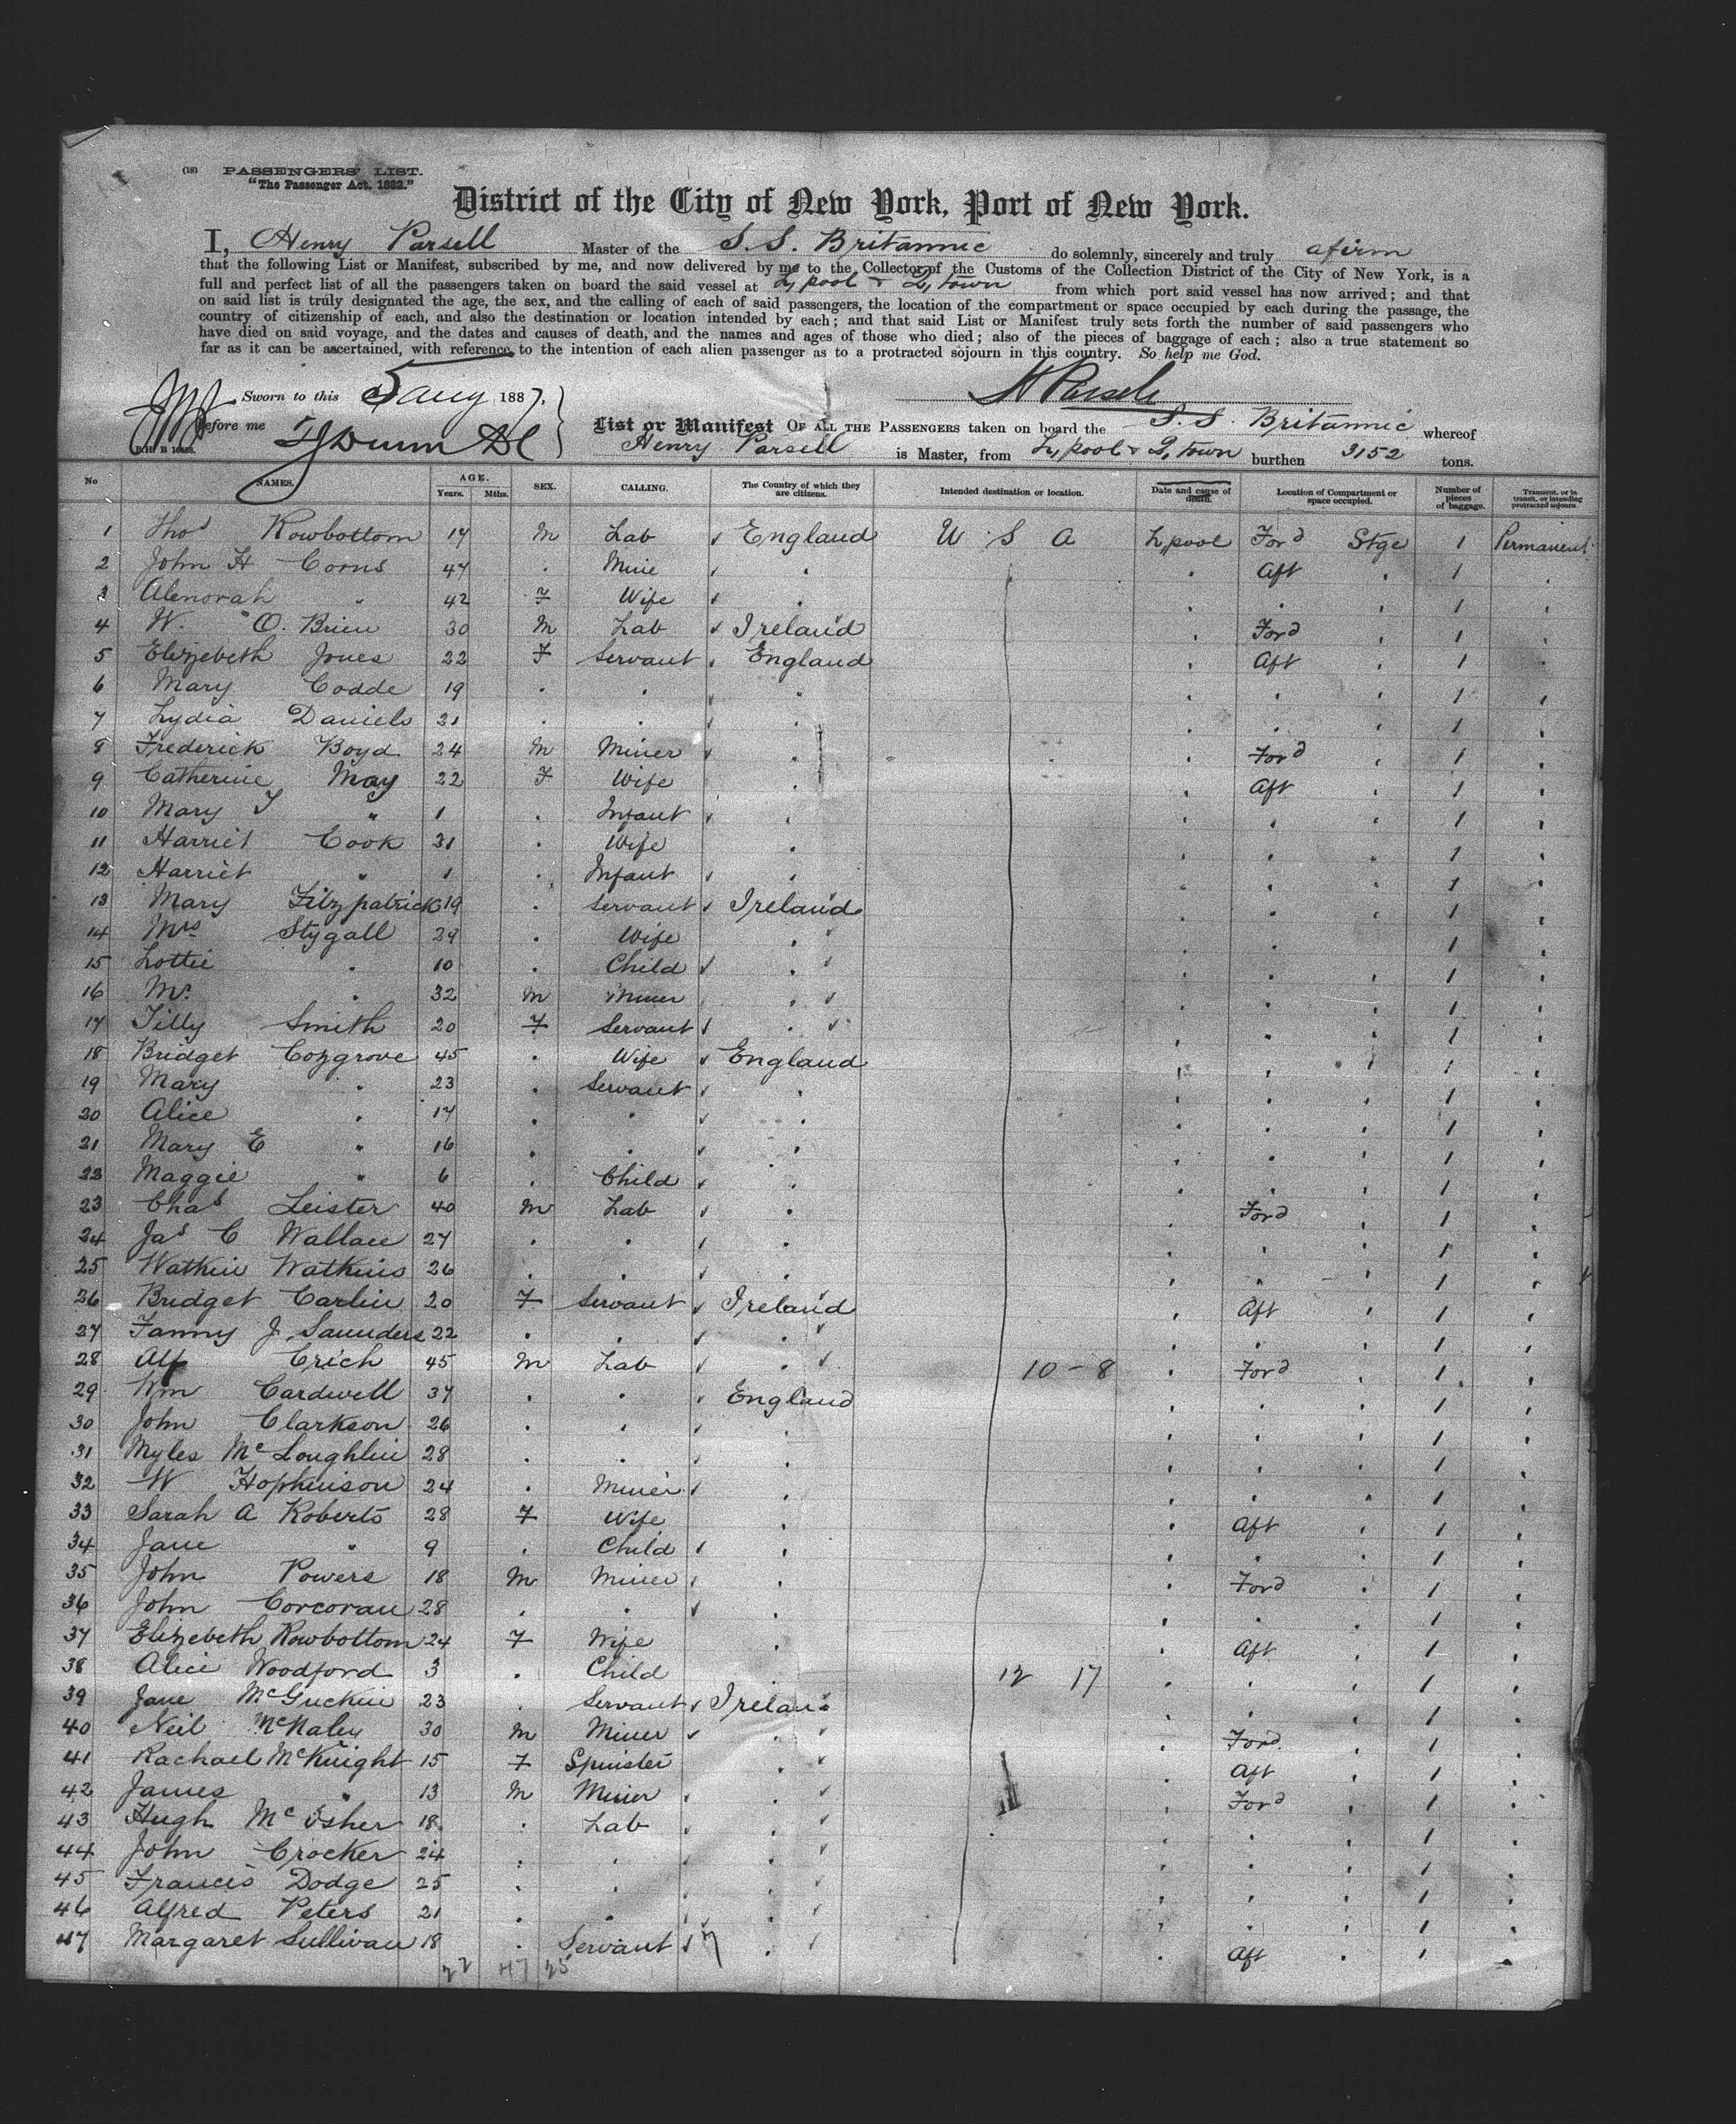 (18) PASSENGERS' LIST.
"The Passenger Act, 1882."
District of the City of New York, Port of New York.
I, Henry Parsell Master of the S.S. Britannic do solemnly, sincerely and truly afirm
that the following List or Manifest, subscribed by me, and now delivered by me to the Collector of the Customs of the Collection District of the City of New York, is a
full and perfect list of all the passengers taken on board the said vessel at L,pool & Q,town from which port said vessel has now arrived; and that
on said list is truly designated the age, the sex, and the calling of each of said passengers, the location of the compartment or space occupied by each during the passage, the
country of citizenship of each, and also the destination or location intended by each; and that said List or Manifest truly sets forth the number of said passengers who
have died on said voyage, and the dates and causes of death, and the names and ages of those who died; also of the pieces of baggage of each; also a true statement so
far as it can be ascertained, with reference to the intention of each alien passenger as to a protracted sojourn in this country. So help me God.
Sworn to this 5 Aug 1887, H Parsell
before me
List or Manifest OF ALL THE PASSENGERS taken on board the S.S. Britannic whereof
Henry Parsell is Master, from L,pool & Q,town burthen 3152 tons.
No NAMES. AGE. Years. Mths. SEX. CALLING. The Country of which they are citizens. Intended destination or location. Date and cause of death. Location of Compartment or space occupied. Number of pieces of baggage. Transient, or in transit, or intending protracted sojourn.
1 Thos Rowbottom 17 M Lab England U S A L,pool Ford Stge 1 Permanent
2 John H Corns 47 . Mine . . Aft . 1 .
3 Alenorah " 42 F Wife . . . . 1 .
4 W. O. Brien 30 M Lab Ireland . Ford . 1 .
5 Elizebeth Jones 22 F Servant England . Aft . 1 .
6 Mary Codde 19 . . . . . . 1 .
7 Lydia Daniels 21 . . . . . . 1 .
8 Frederick Boyd 24 M Miner . . Ford . 1 .
9 Catherine May 22 F Wife . . Aft . 1 .
10 Mary J " 1 . Infant . . . . 1 .
11 Harriet Cook 31 . Wife . . . . 1 .
12 Harriet " 1 . Infant . . . . 1 .
13 Mary Fitzpatrick 19 . Servant Ireland . . . 1 .
14 Mrs Stygall 29 . Wife . . . . 1 .
15 Lottie . 10 . Child . . . . 1 .
16 Mr. . 32 M Miner . . . . 1 .
17 Tilly Smith 20 F Servant . . . . 1 .
18 Bridget Cozgrove 45 . Wife England . . . 1 .
19 Mary . 23 . Servant . . . . 1 .
20 Alice . 17 . . . . . . 1 .
21 Mary E " 16 . . . . . . 1 .
22 Maggie " 6 . Child . . . . 1 .
23 Chas Leister 40 M Lab . . Ford . 1 .
24 Jas C Wallace 27 . . . . . . 1 .
25 Watkin Watkins 26 . . . . . . 1 .
26 Bridget Carlin 20 F Servant Ireland . Aft . 1 .
27 Fanny J Saunders 22 . . . . . . 1 .
28 Alf Crich 45 M Lab . 10-8 . Ford . 1 .
29 Wm Cardwell 37 . . England . . . 1 .
30 John Clarkson 26 . . . . . . 1 .
31 Myles McLoughlin 28 . . . . . . 1 .
32 W Hopkinson 24 . Miner . . . . 1 .
33 Sarah A Roberts 28 F Wife . . Aft . 1 .
34 Jane " 9 . Child . . . . 1 .
35 John Powers 18 M Miner . . Ford . 1 .
36 John Corcoran 28 . . . . . . 1 .
37 Elizebeth Rowbottom 24 F Wife . . Aft . 1 .
38 Alice Woodford 3 . Child 12 17 . . . 1 .
39 Jane McGuckin 23 . Servant Ireland . . . 1 .
40 Neil McNaley 30 M Miner . . Ford . 1 .
41 Rachael McKnight 15 F Spinster . . Aft . 1 .
42 James " 13 M Miner . . Ford . 1 .
43 Hugh McOsher 18 . Lab . . . . 1 .
44 John Crocker 24 . . . . . . 1 .
45 Francis Dodge 25 . . . . . . 1 .
46 Alfred Peters 21 . . . . . . 1 .
47 Margaret Sullivan 18 . Servant . . Aft . 1 .
22 47 25